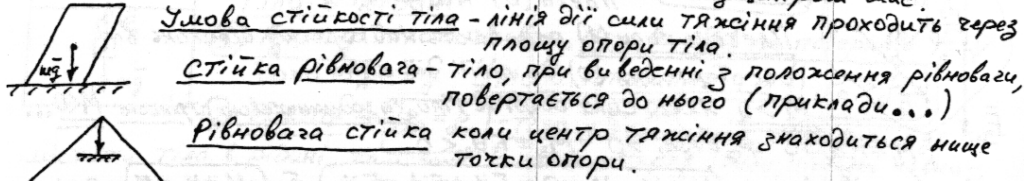 Умова стійкості тіла – лінія дії сили тяжіння проходить через
площу опори тіла.
mg
Стійка рівновага – тіло, при виведенні з положення рівноваги,
повертається до нього (приклади...)
Рівновага стійка коли центр тяжіння знаходиться нище
точки опори.